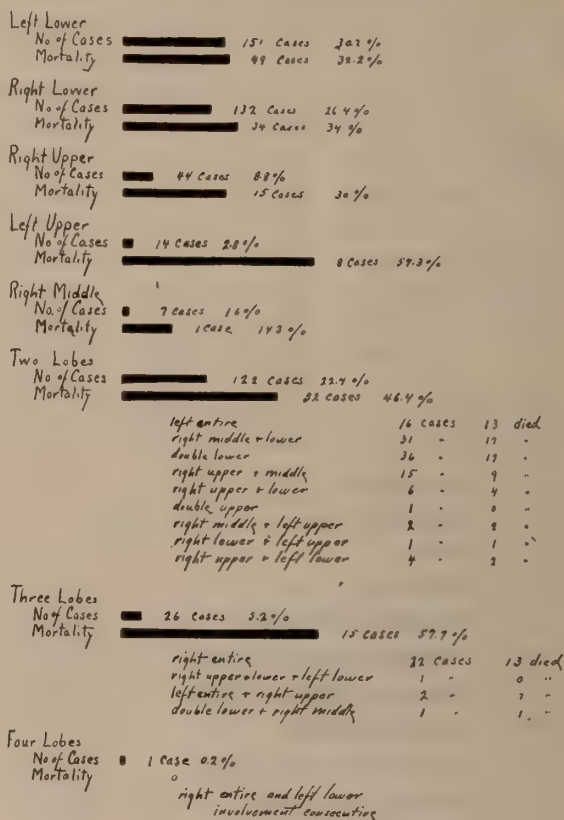 Left Lower
No of Cases 151 Cases 30.2%
Mortality 49 Cases 32.2%
Right Lower
No of Cases 132 Cases 26.4%
Mortality 34 Cases 34%
Right Upper
No of Cases 44 Cases 8.8%
Mortality 15 Cases 30%
Left Upper
No of Cases 14 Cases 2.8%
Mortality 8 Cases 57.3%
Right Middle
No. of Cases 7 Cases 1.6%
Mortality 1 Case 14.3%
Two Lobes
No of Cases 122 Cases 22.4%
Mortality 52 Cases 46.4%
left entire 16 cases 13 died
right middle + lower 31 " 17 "
double lower 36 " "
right upper + middle 15 " 9 "
right upper + lower 6 " 4 "
double upper 1 " 0 "
right middle + left upper 2 " 2 "
right lower + left upper 1 " 1 "
right upper + left lower 4 " 2 "
Three Lobes
No of Cases 26 Cases 5.2%
Mortality 15 Cases 57.7%
right entire 22 Cases 13 died
right upper + lower + left lower 1 " 0 "
left entire + right upper 2 " "
double lower + right middle 1 " 1 "
Four Lobes
No of Cases 1 Case 0.2%
Mortality 0
right entire and left lower
involvement consecutive